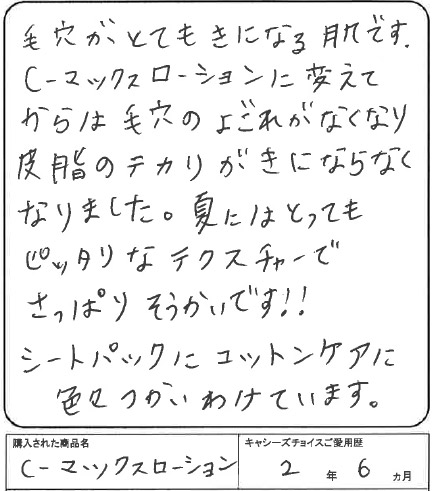 毛穴が、とてもきになる肌です.
C-マックスローションに変えて
からは毛穴のよごれがなくなり
皮脂のテカリがきにならなく
なりました。夏にはとっても
ピッタリなテクスチャーで
さっぱりそうかいです!!
シートパックにコットンケアに
色々つかいわけています。
購入された商品名 キャシーズチョイスご愛用歴
C-マックスローション 2年6ヵ月